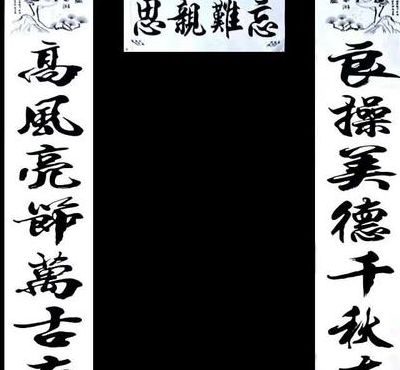 思親難忘
良操美德千秋
高風亮節萬古